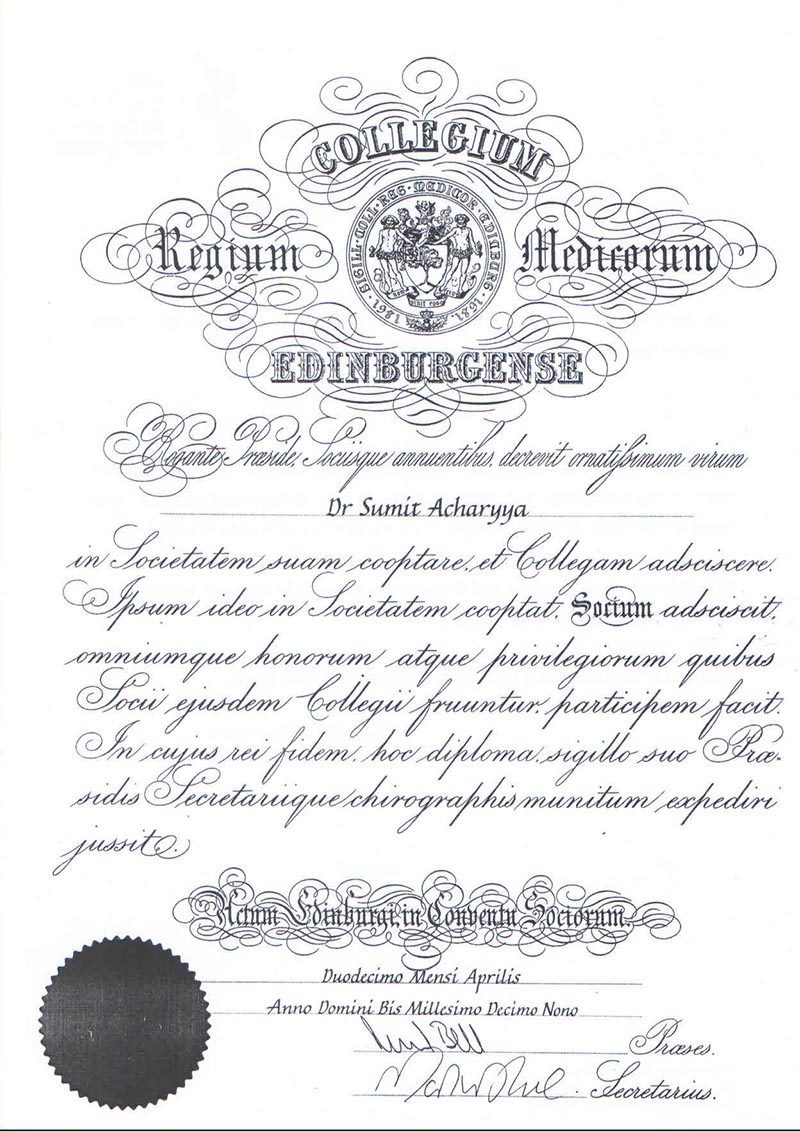 COLLEGIUM
Regium Medicorum
SIGILL · COLL · REG · MEDICOR · EDINBURG · 1681 · 1861
EDINBURGENSE
Rogante Præside, Sociisque annuentibus, decrevit ornatissimum virum
Dr Sumit Acharyya
in Societatem suam cooptare, et Collegam adsciscere.
Ipsum ideo in Societatem cooptat, Socium adsciscit,
omniumque honorum atque privilegiorum quibus
Socii ejusdem Collegii fruuntur, participem facit.
In cujus rei fidem, hoc diploma, sigillo suo Præ-
sidis Secretariique chirographis munitum expediri
jussit.
Actum Edinburgi, in Conventu Sociorum,
Duodecimo Mensi Aprilis
Anno Domini Bis Millesimo Decimo Nono
Præses.
Secretarius.